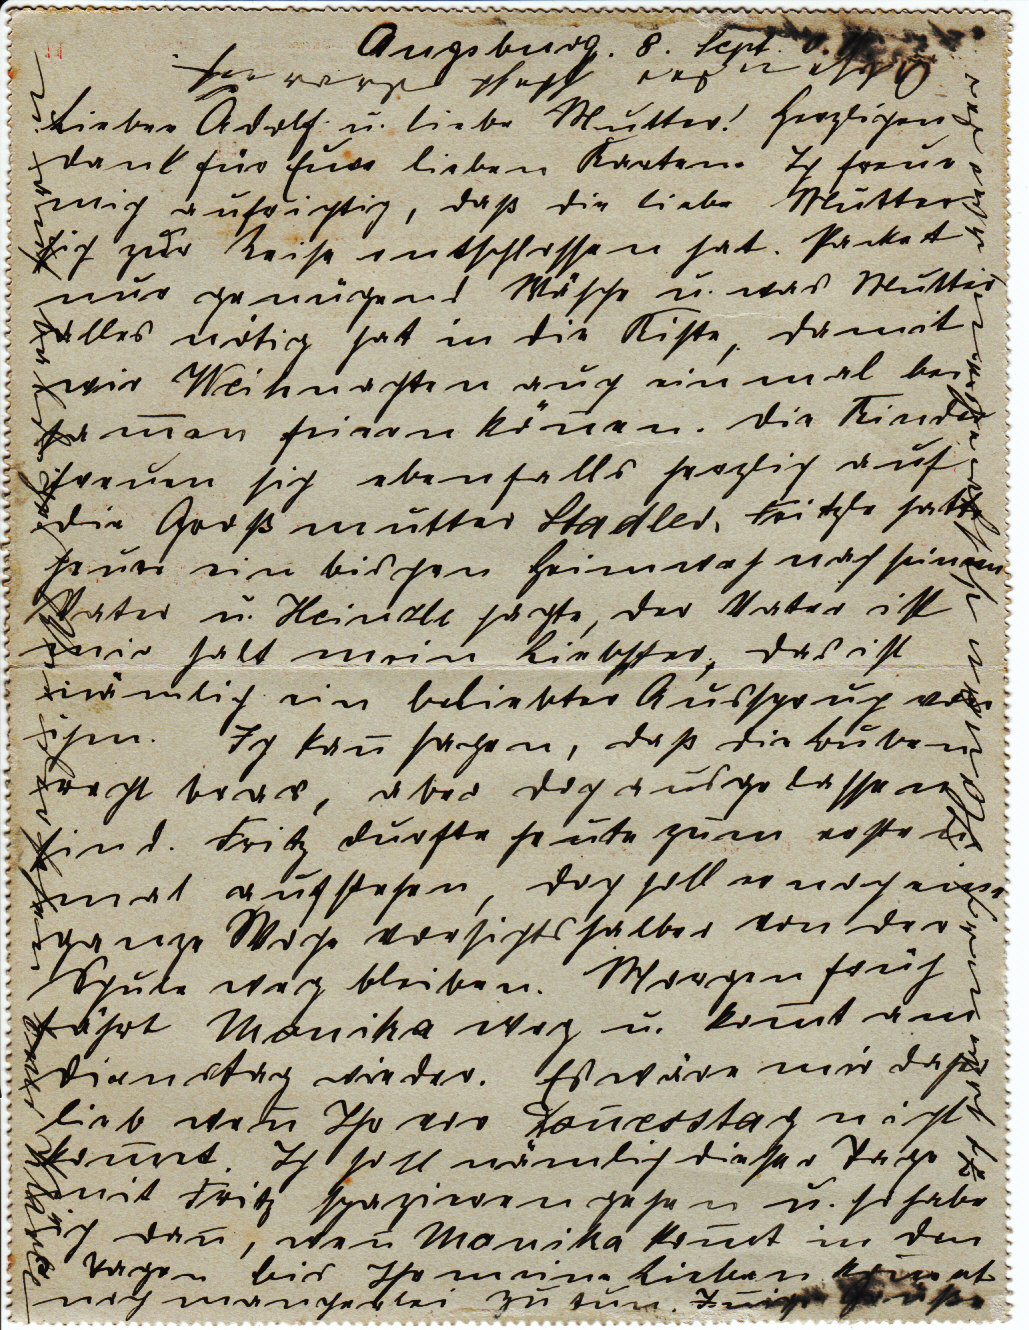 Augsburg. 8. Sept.
Lieber Adolf u. liebe Mutter! Herzlichen
Dank für Eure lieben Karten. Ich freue
mich aufrichtig, daß die liebe Mutter
sich zur Reise entschlossen hat. Packet
nur genügend Wäsche u. was Mutter
alles nötig hat in die Kiste, damit
wir Weihnachten auch einmal bei
samen feiern könen. Die Kinder
freuen sich ebenfalls herzlich auf
die Großmutter Stadler. Fritzle hatte
heute ein bischen Heimweh nach seinem
Vater u. Heinzle sagte, der Vater ist
mir halt mein Liebster, das ist
nämlich ein beliebter Ausspruch von
ihm. Ich kan sagen, daß die Buben
recht brav, aber doch ausgelassen
sind. Fritz durfte heute zum ersten
mal aufstehen, doch soll er noch eine
ganze Woche vorsichtshalber von der
Schule weg bleiben. Morgen früh
fährt Monika weg u. komt am
Dienstag wieder. Es wäre mir daher
lieb wen Ihr vor Donerstag nicht
kommt. Ich soll nämlich dieser Tage
mit Fritz spazieren gehen u. so habe
ich dan, wen Monika komt in den
Tagen bis Ihr meine Lieben kommt
noch mancherlei zu tun. Innige Grüße